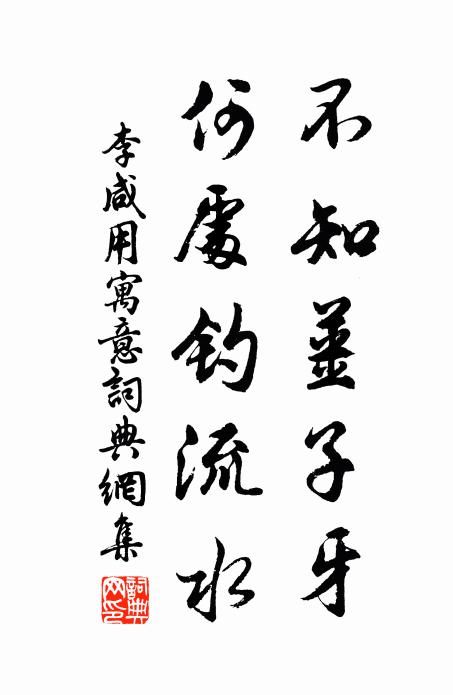 不知薑子牙
何處釣流水
李咸用寓意詞典網集
詞典網印